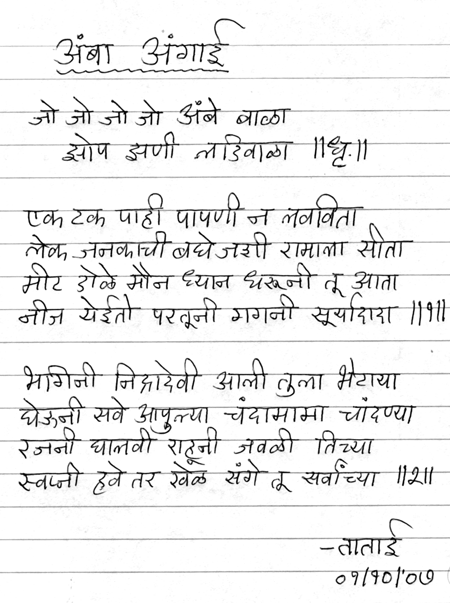 अंबा अंगाई
जो जो जो जो अंबे बाळा
झोप झणी लडिवाळा ||धृ.||
एक टक पाही पापणी न लवविता
लेक जनकाची बघे जशी रामाला सीता
मीट डोळे मौन ध्यान धरूनी तू आता
नीज येईतो परतूनी गगनी सूर्यादादा ||१||
भगिनी निद्रादेवी आली तुला भेटाया
घेऊनी सवे आपुल्या चंदामामा चांदण्या
रजनी घालवी राहूनी जवळी तिच्या
स्वप्नी हवे तर खेळ संगे तू सर्वांच्या ||२||
-ताताई
०१/१०/'०७